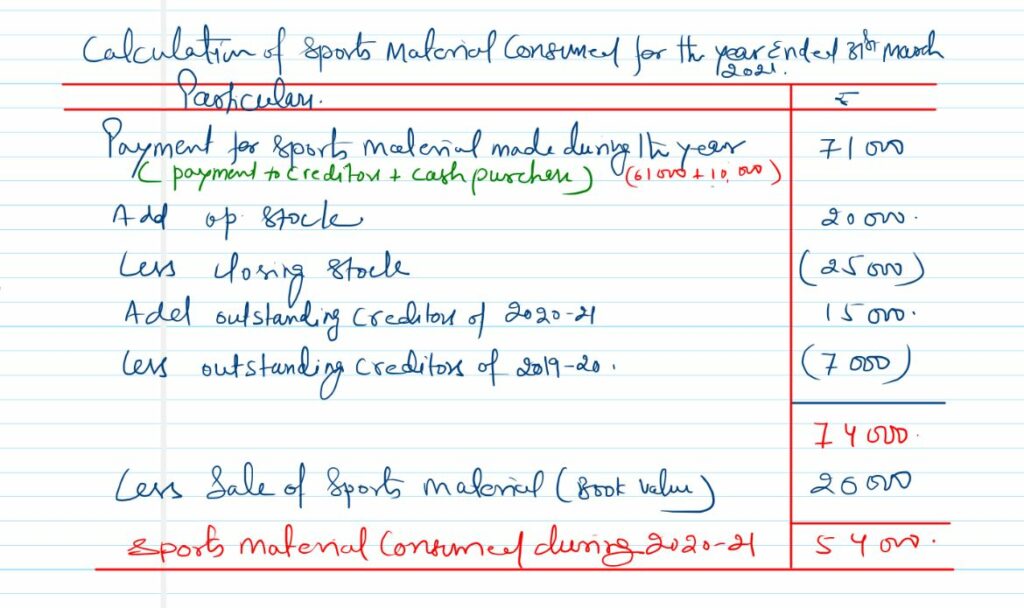 Calculation of Sports Material Consumed for the year Ended 31st March 2021.
Particulars. ₹
Payment for sports material made during the year 71000
(payment to creditors + cash purchase) (61000 + 10,000)
Add op. stock 20000.
Less closing stock (25000)
Add outstanding creditors of 2020-21 15000.
Less outstanding creditors of 2019-20. (7000)
74000.
Less Sale of Sports material (Book value) 20000
Sports material Consumed during 2020-21 54000.